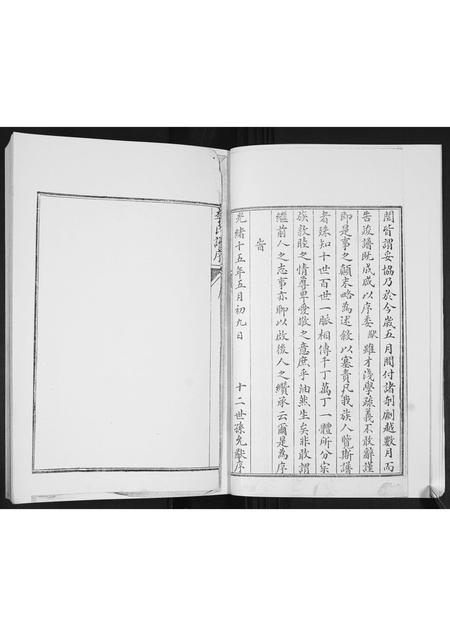 閱皆謂妥協乃於今歲五月間付諸剞劂越數月而
告竣譜既成咸以序委猷雖才淺學疏義不敢辭謹
即是事之顛末略為述敘以塞責凡我族人覽斯譜
者殊知十世百世一脈相傳千丁萬丁一體所分宗
族敦睦之情尊卑愛敬之意庶乎油然生矣非敢謂
繼前人之志事亦聊以啟後人之纘承云爾是為序
旹
光緒十五年五月初九日 十二世孫允猷序
氏譜序